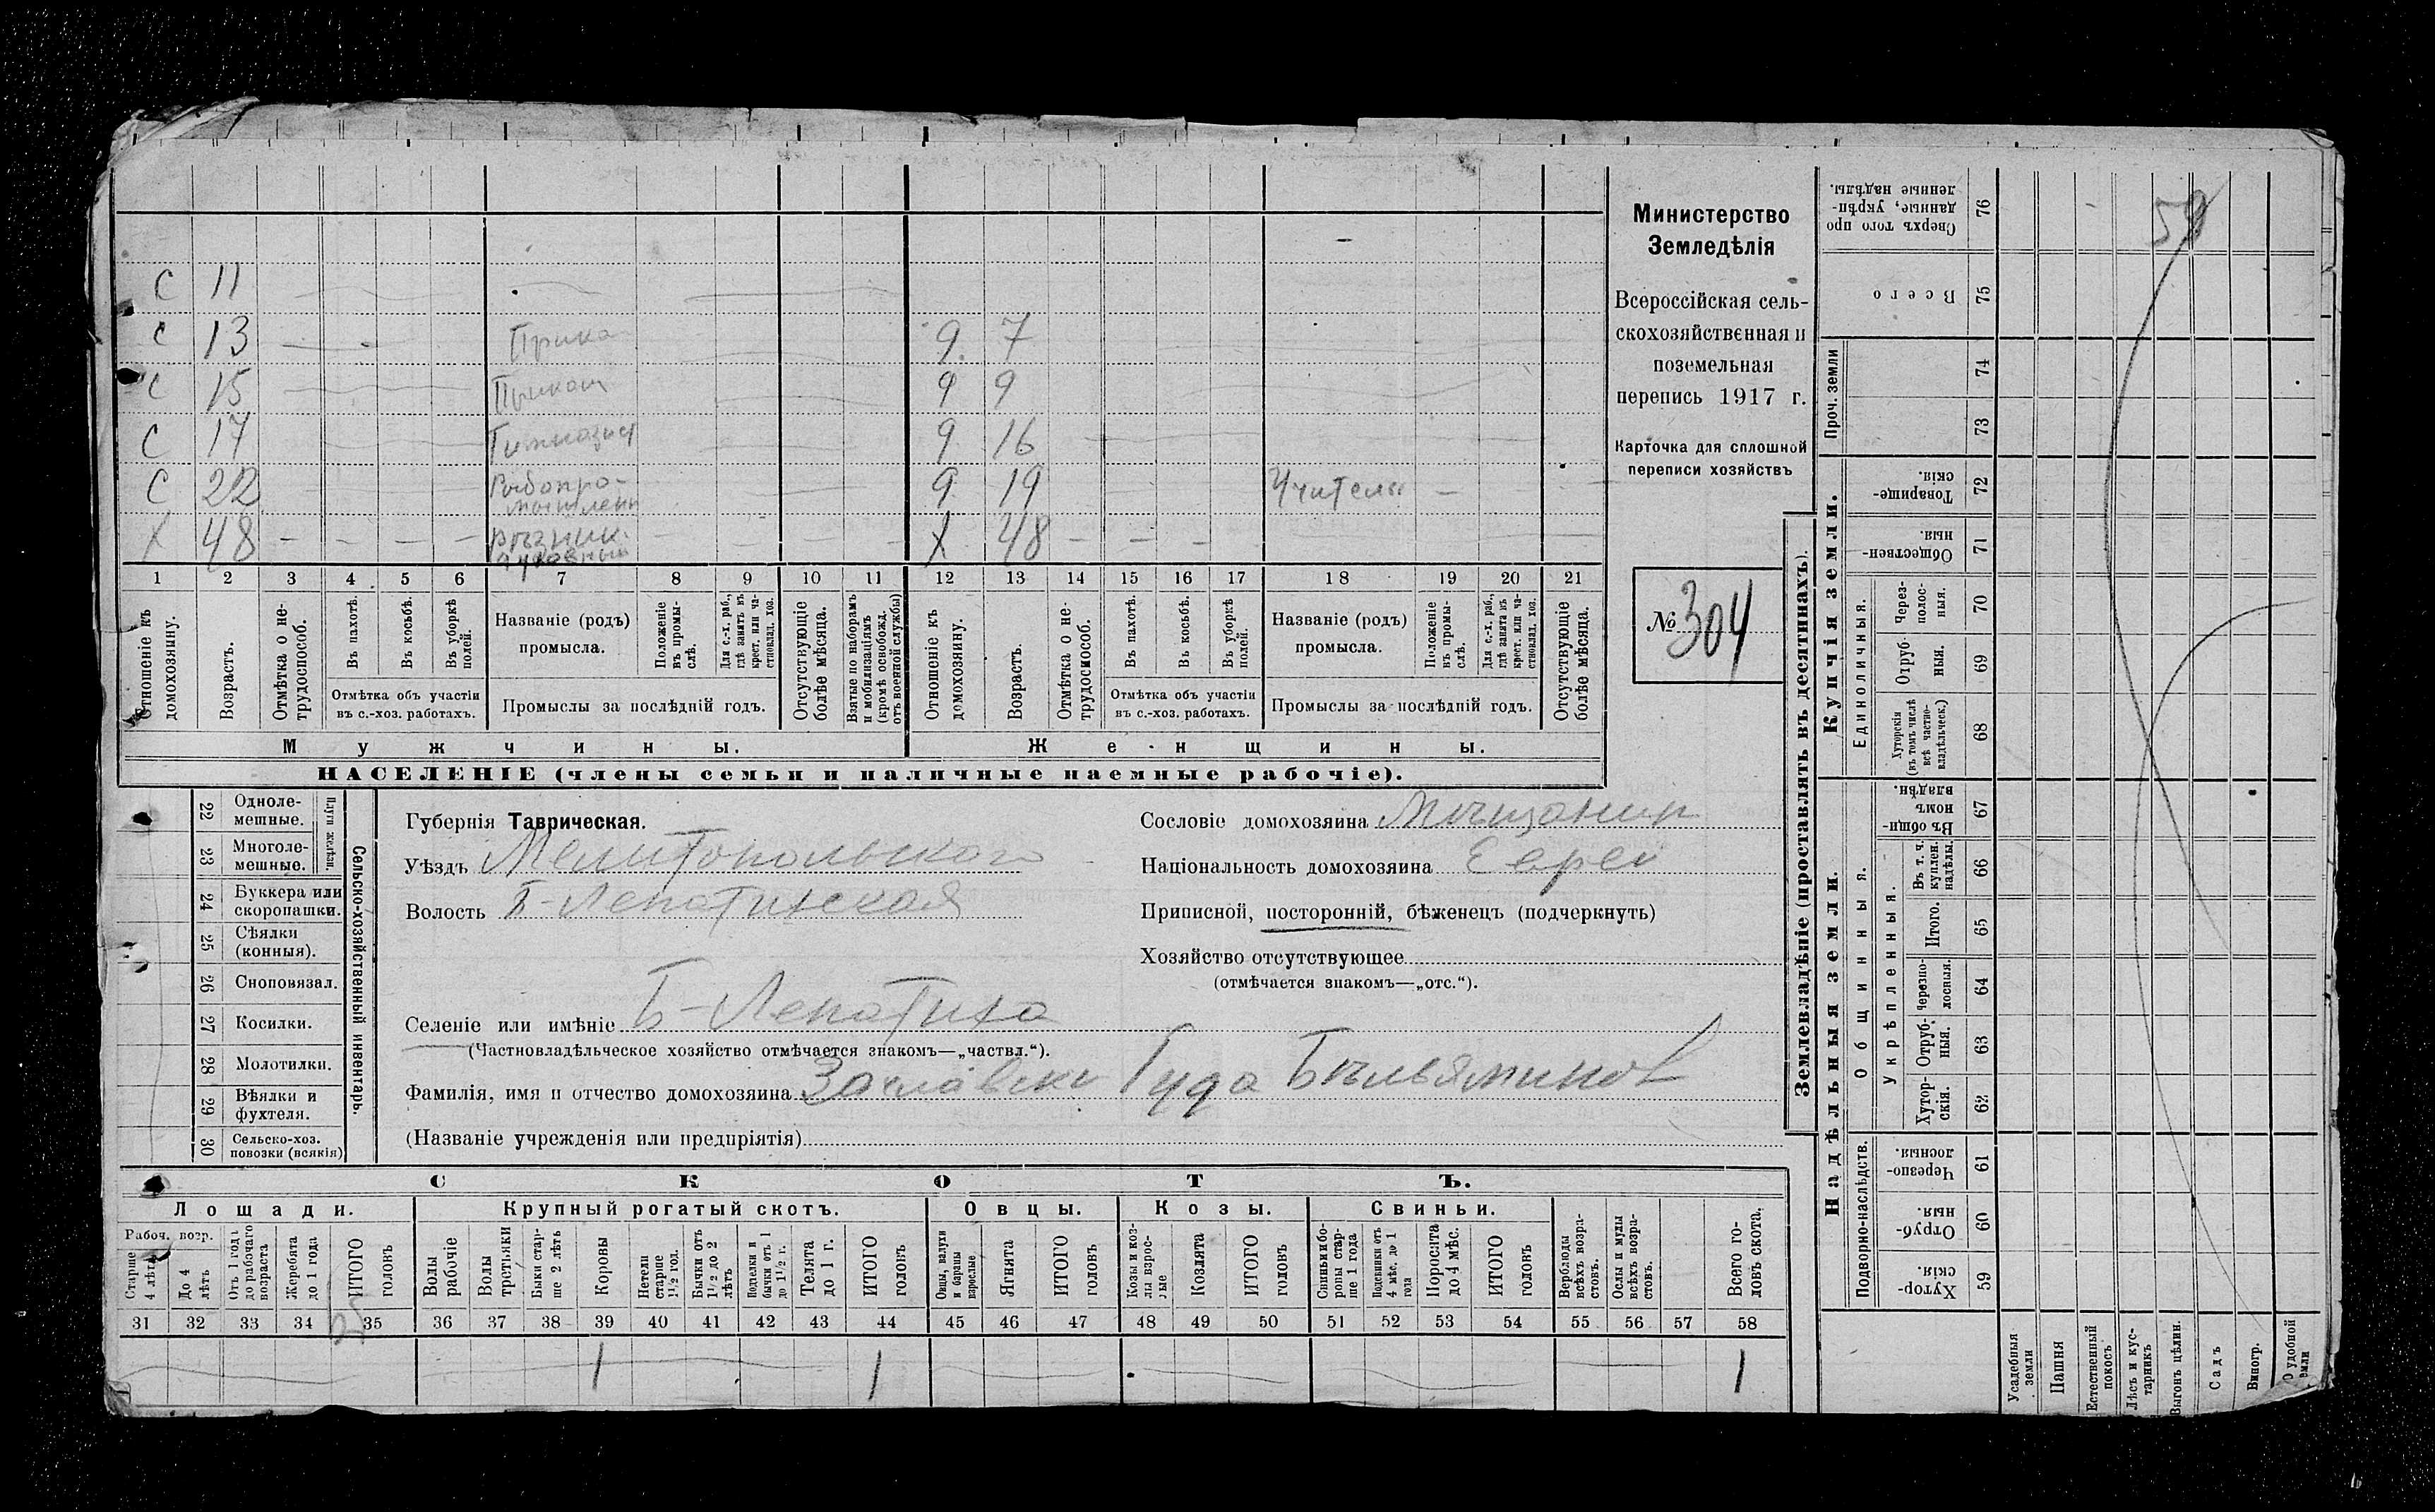 С 11
С 13 Прика 9 7
С 15 Прикащ 9 9
С 17 Гимназист 9 16
С 22 Рыбопро-
мышленн 9 19 Учитель —
Х 48 — — — — Рѣзник
духовный Х 48 — — —
1 2 3 4 5 6 7 8 9 10 11 12 13 14 15 16 17 18 19 20 21
Отношеніе къ домохозяину.
Возрастъ.
Отмѣтка о не-трудоспособ.
Въ пахотѣ.
Въ косьбѣ.
Въ уборкѣ полей.
Отмѣтка объ участіи
въ с.-хоз. работахъ.
Названіе (родъ)
промысла.
Положеніе въ промы-слѣ.
Для с.-х. раб., гдѣ занятъ въ крест. или ча-стновлад. хоз.
Промыслы за послѣдній годъ.
Отсутствующіе болѣе мѣсяца.
Взятые по наборамъ и мобилизаціямъ (кромѣ освобожд. отъ военной службы)
Отношеніе къ домохозяину.
Возрастъ.
Отмѣтка о не-трудоспособ.
Въ пахотѣ.
Въ косьбѣ.
Въ уборкѣ полей.
Отмѣтка объ участіи
въ с.-хоз. работахъ.
Названіе (родъ)
промысла.
Положеніе въ промы-слѣ.
Для с.-х. раб., гдѣ занята въ крест. или ча-стновлад. хоз.
Промыслы за послѣдній годъ.
Отсутствующіе болѣе мѣсяца.
Мужчины.
Женщины.
НАСЕЛЕНІЕ (члены семьи и наличные наемные рабочіе).
Министерство
Земледѣлія
Всероссійская сель-
скохозяйственная и
поземельная
перепись 1917 г.
Карточка для сплошной
переписи хозяйствъ
№ 304
22 Одноле-
мешные.
23 Многоле-
мешные.
Плуги желѣзн.
24 Буккера или
скоропашки.
25 Сѣялки
(конныя).
26 Сноповязал.
27 Косилки.
28 Молотилки.
29 Вѣялки и
фухтеля.
30 Сельско-хоз.
повозки (всякія)
Сельско-хозяйственный инвентарь.
Губернія Таврическая.
Уѣздъ Мелитопольского
Волость Б-Лепатихская
Селеніе или имѣніе Б-Лепатиха
(Частновладѣльческое хозяйство отмѣчается знакомъ—„частвл.“).
Фамилія, имя и отчество домохозяина Заславски Гуда Бѣльяминов
(Названіе учрежденія или предпріятія)
Сословіе домохозяина Мѣщанин
Національность домохозяина Еврей
Приписной, посторонній, бѣженецъ (подчеркнуть)
Хозяйство отсутствующее
(отмѣчается знакомъ—„отс.“).
СКОТЪ.
Лошади. Крупный рогатый скотъ. Овцы. Козы. Свиньи.
Рабоч. возр.
Старше 4 лѣтъ
До 4 лѣтъ
Отъ 1 года до рабочаго возраста
Жеребята до 1 года
ИТОГО головъ
Волы рабочіе
Волы третьяки
Быки стар-ше 2 лѣтъ
Коровы
Нетели старше 1½ год.
Бычки отъ 1½ до 2 лѣтъ
Подтелки и бычки отъ 1 до 1½ г.
Телята до 1 г.
ИТОГО головъ
Овцы, валухи и бараны взрослые
Ягнята
ИТОГО головъ
Козы и коз-лы взрос-лые
Козлята
ИТОГО головъ
Свиньи и бо-ровы стар-ше 1 года
Подсвинки отъ 4 мѣс. до 1 года
Поросята до 4 мѣс.
ИТОГО головъ
Верблюды всѣхъ возра-стовъ.
Ослы и мулы всѣхъ возра-стовъ.
Всего го-ловъ скота.
31 32 33 34 35 36 37 38 39 40 41 42 43 44 45 46 47 48 49 50 51 52 53 54 55 56 57 58
1 1 1
Землевладѣніе (проставлять въ десятинахъ).
Купчія земли.
Надѣльныя земли.
Сверхъ того про данные, укрѣп-ленные надѣлы. 76
Всего 75
Проч. земли 74 73
Товарище-скія. 72
Обществен-ныя. 71
Единоличныя.
Через-полос-ныя. 70
Отруб-ныя. 69
Хуторскія (въ томъ числѣ всѣ частно-владѣльческ.) 68
Общинныя.
Въ общин-номъ владѣн. 67
Укрѣпленныя.
Въ т. ч. куплен. надѣлы. 66
Итого. 65
Черезпо-лосныя. 64
Отруб-ныя. 63
Хутор-скія. 62
Подворно-наслѣдств.
Черезпо-лосныя. 61
Отруб-ныя. 60
Хутор-скія. 59
Усадебныя земли
Пашня
Естественный покосъ
Лѣсъ и кус-тарникъ
Выгонъ цѣлин.
Садъ
Виногр.
59